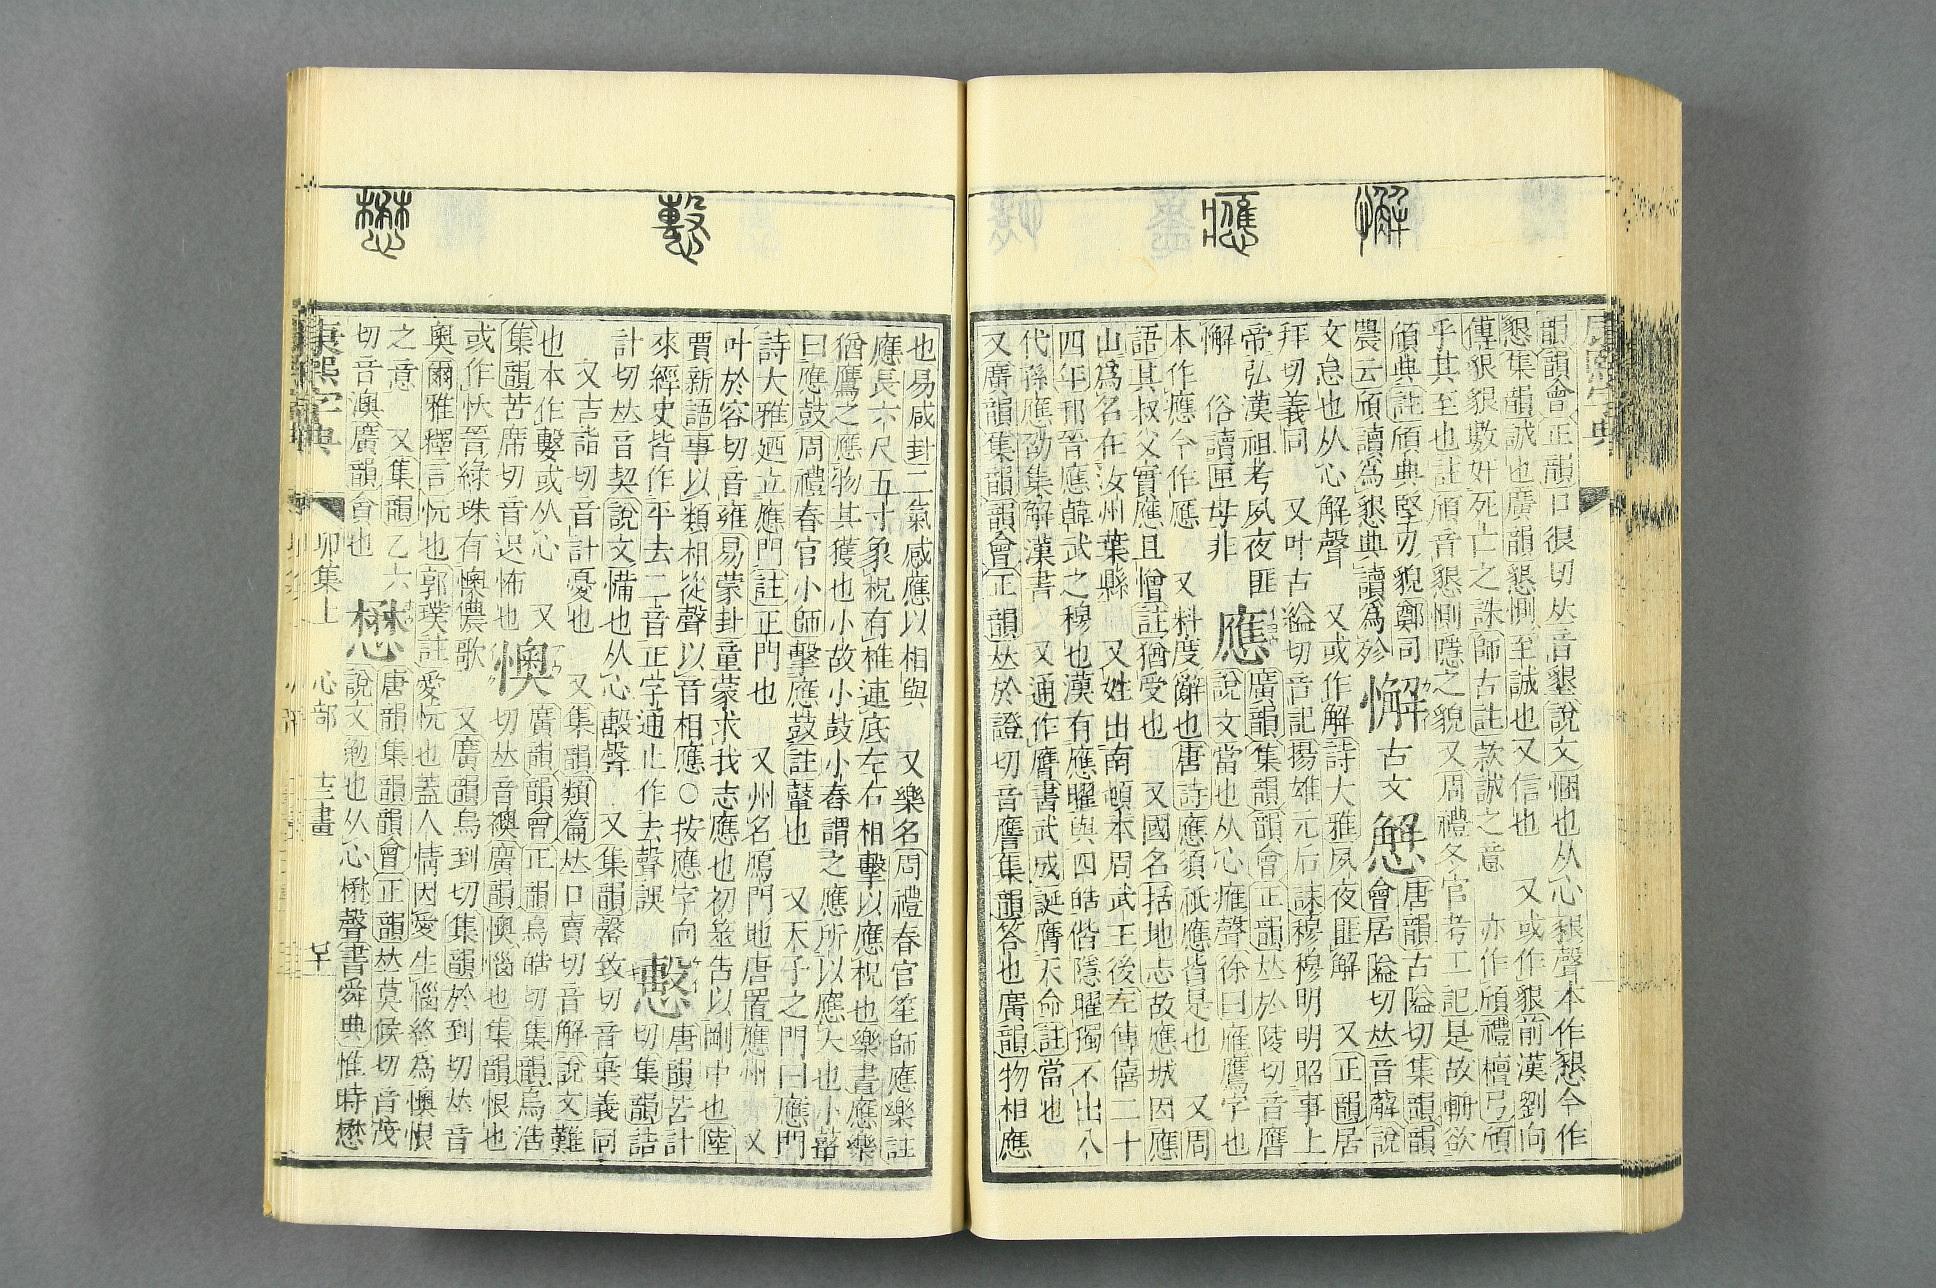 懈
應
韻韻會正韻口很切𠀤音墾說文悃也从心豤聲本作懇今作
懇集韻誠也廣韻懇惻至誠也又信也 又或作豤前漢劉向
傳豤豤數奸死亡之誅師古註款誠之意 亦作頎禮檀弓頎
乎其至也註頎音懇惻隱之貌又周禮冬官考工記是故輈欲
頎典註頎典堅刃貌鄭司
農云頎讀為懇典讀為殄
懈
古文
懈
唐韻古隘切集韻韻
會居隘切𠀤音薢說
文怠也从心解聲 又或作解詩大雅夙夜匪解 又正韻居
拜切義同 又叶古縊切音記揚雄元后誄穆穆明明昭事上
帝弘漢祖考夙夜匪
懈 俗讀匣母非
應
廣韻集韻韻會正韻𠀤於陵切音膺
說文當也从心䧹聲徐曰䧹鷹字也
本作應今作應 又料度辭也唐詩應須祇應皆是也 又周
語其叔父實應且憎註猶受也 又國名括地志故應城因應
山為名在汝州葉縣 又姓出南頓本周武王後左傳僖二十
四年邘晉應韓武之穆也漢有應曜與四皓偕隱曜獨不出八
代孫應劭集解漢書 又通作膺書武成誕膺天命註當也
又廣韻集韻韻會正韻𠀤於證切音譍集韻答也廣韻物相應
慤
懋
也易咸卦二氣感應以相與 又樂名周禮春官笙師應樂註
應長六尺五寸象柷有椎連底左右相擊以應柷也樂書應樂
猶鷹之應物其獲也小故小鼓小舂謂之應所以應大也小鼗
曰應鼓周禮春官小師擊應鼓註鼙也 又天子之門曰應門
詩大雅廼立應門註正門也 又州名鴈門地唐置應州 又
叶於容切音雍易蒙卦童蒙求我志應也初筮告以剛中也陸
賈新語事以類相從聲以音相應○按應字向
來經史皆作平去二音正字通止作去聲誤
唐韻苦計
切集韻詰
計切𠀤音契說文㤥也从心毄聲 又集韻馨致切音棄義同
又吉詣切音計憂也 又集韻類篇𠀤口賣切音解說文難
也本作㰁或从心 又
集韻苦席切音迟怖也
懊
廣韻韻會正韻烏皓切集韻烏浩
切𠀤音襖廣韻懊惱也集韻恨也
或作㤇晉綠珠有懊儂歌 又廣韻烏到切集韻於到切𠀤音
奧爾雅釋言忨也郭璞註愛忨也蓋人情因愛生惱終為懊恨
之意 又集韻乙六
切音澳廣韻貪也
懋
唐韻集韻韻會正韻𠀤莫候切音茂
說文勉也从心楙聲書舜典惟時懋
康熙字典 卯集上 心部 十三畫